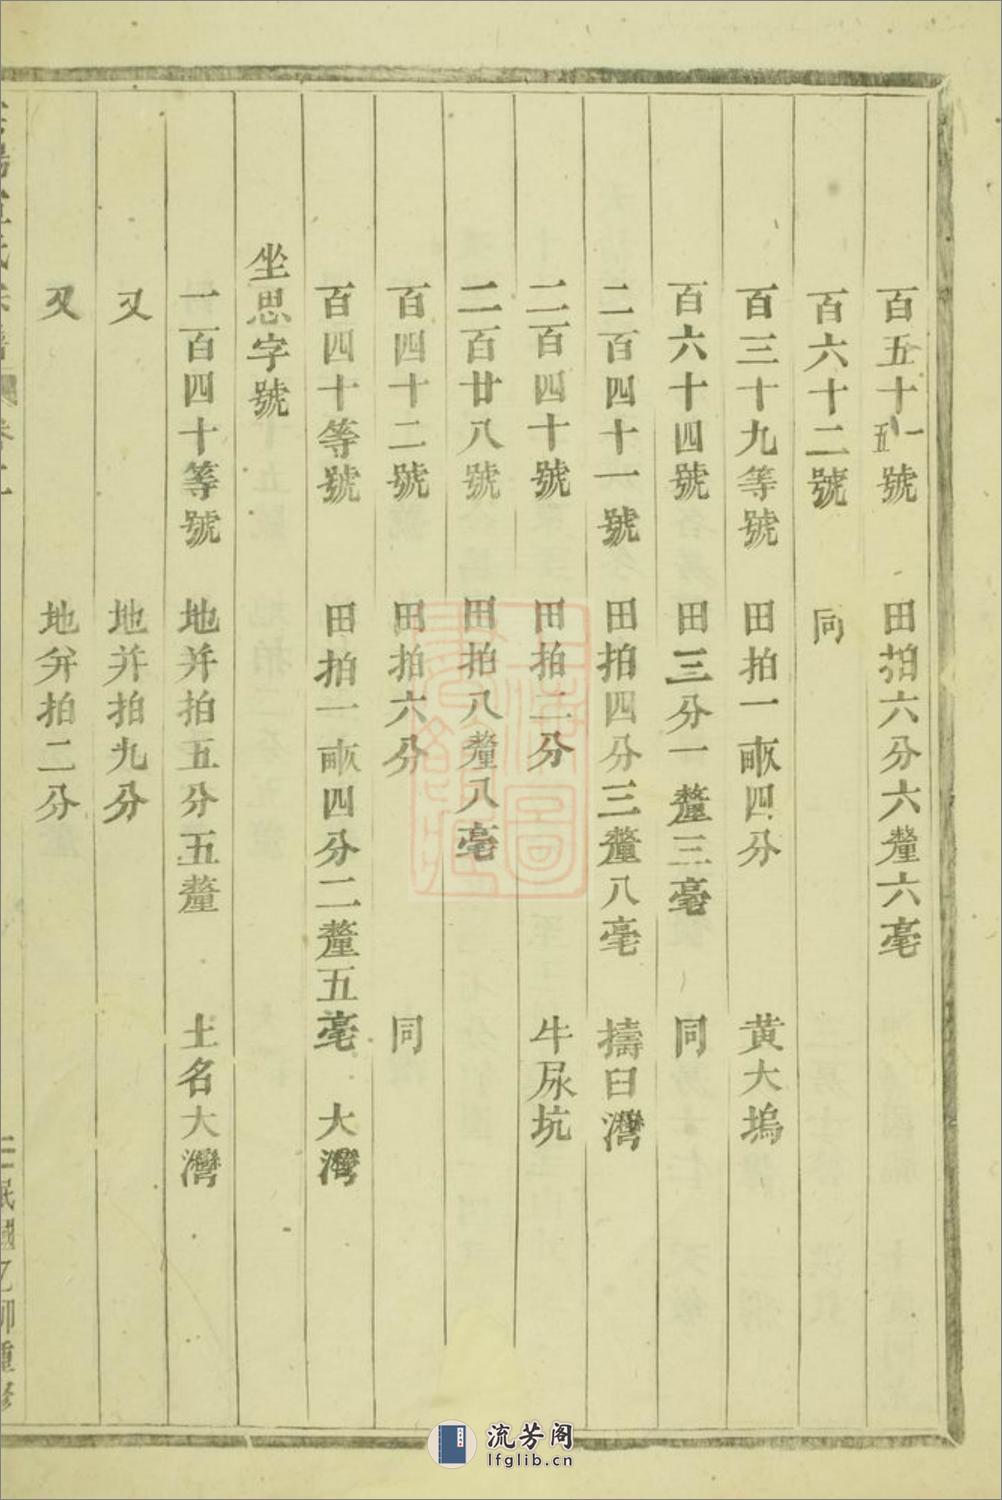 百五十五一號 田拍六分六釐六毫
百六十二號 同
百三十九等號 田拍一畝四分 黄大塢
百六十四號 田三分一釐三毫 同
二百四十一號 田拍四分三釐八毫 擣臼灣
二百四十號 田拍二分 牛尿坑
二百廿八號 田拍八釐八毫
百四十二號 田拍六分 同
百四十等號 田拍一畝四分二釐五毫 大灣
坐思字號
一百四十等號 地并拍五分五釐 土名大灣
又 地并拍九分
又 地并拍二分
民國乙卯重修
流芳阁
lfglib.cn